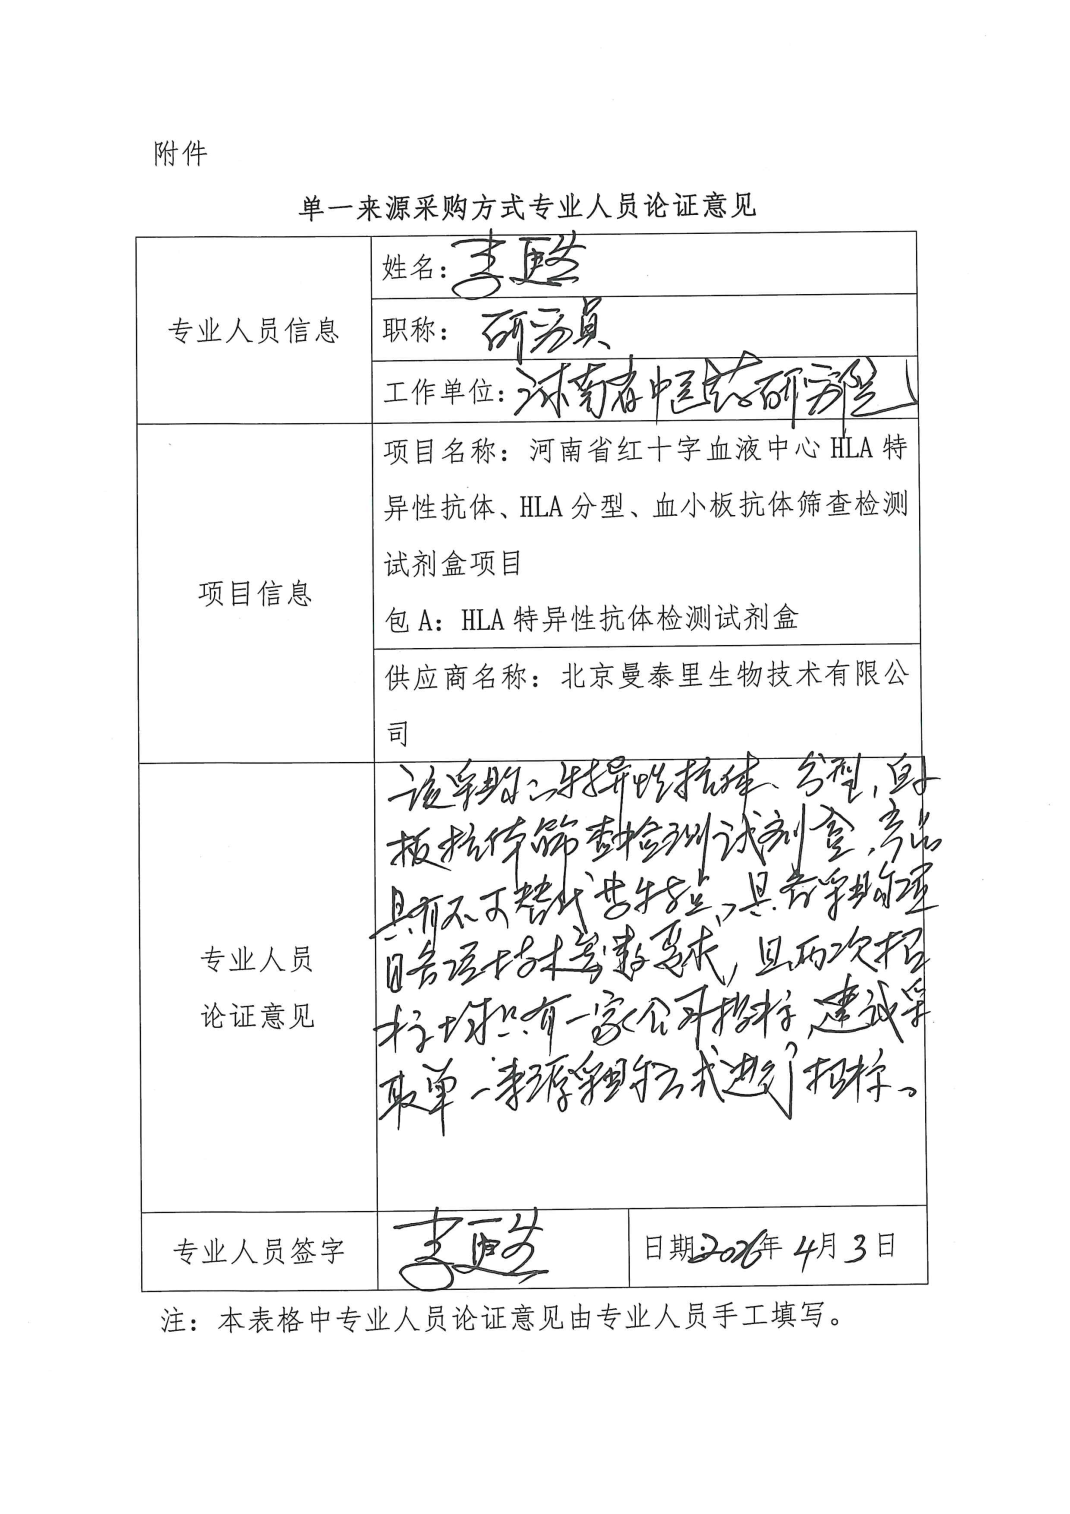 附件
单一来源采购方式专业人员论证意见
专业人员信息
姓名：李更生
职称：研究员
工作单位：河南省中医药研究院
项目信息
项目名称：河南省红十字血液中心 HLA 特
异性抗体、HLA 分型、血小板抗体筛查检测
试剂盒项目
包 A：HLA 特异性抗体检测试剂盒
供应商名称：北京曼泰里生物技术有限公
司
专业人员
论证意见
该采购特异性抗体、分型，血小
板抗体筛查检测试剂盒，产品
具有不可替代等特点，具备采购
技术参数要求，且两次招
标均只有一家公司投标，建议采
取单一来源采购方式进行招标。
专业人员签字
李更生
日期：2026年 4月 3日
注：本表格中专业人员论证意见由专业人员手工填写。